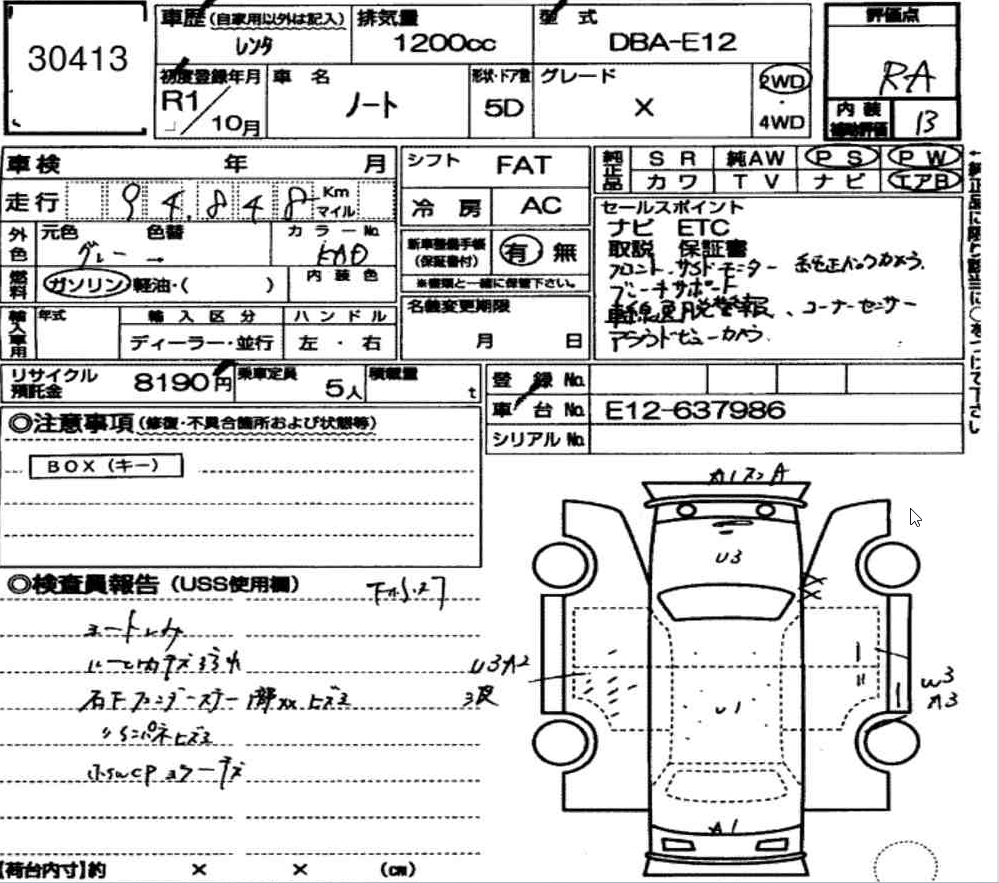 30413
車歴(自家用以外は記入) レンタ
排気量 1200cc
型式 DBA-E12
評価点 RA
内装補助評価 B
初度登録年月 R1/10月
車名 ノート
形状・ドア数 5D
グレード X
2WD・4WD
車検 年 月
シフト FAT
純正品 SR 純AW PS PW
カワ TV ナビ エアB
走行 94,848 Km マイル
冷房 AC
セールスポイント
ナビ ETC
取説 保証書
フロント・サイドモニター 純正バックカメラ
ブレーキサポート
車線逸脱警報、コーナーセンサー
アラウンドビューカメラ
外色 元色 グレー 色替 カラーNo. KAD
新車整備手帳(保証書付) 有 無
※書類と一緒に保管下さい。
燃料 ガソリン 軽油・( ) 内装色
名義変更期限 月 日
輸入車用 年式 輸入区分 ハンドル
ディーラー・並行 左・右
リサイクル預託金 8190円
乗車定員 5人
積載量 t
登録No.
車台No. E12-637986
シリアルNo.
◎注意事項(修復・不具合箇所および状態等)
BOX(キー)
◎検査員報告(USS使用欄)
シートしみ
石下フェンダーステー部xxヒズミ
A1 A
U3
U3A2
U1
A3
A1
【荷台内寸】約 × × (cm)